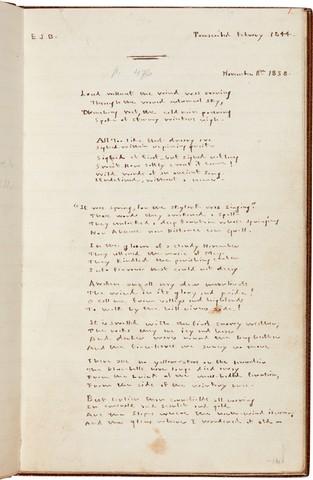 E J B.
Transcribed Febuary 1844.
November 11th 1838.
Loud without the wind was roaring
Through the waned autumnal sky,
Drenching wet, the cold rain pouring
Spoke of stormy winters nigh.
All too like that dreary eve
Sighed within repining grief
Sighed at first but sighed not long
Sweet How softly sweet it came!
Wild words of an ancient song
Undefined, without a name
"It was spring, for the skylark was singing."
Those words they awakened a spell
They unlocked a deep fountain whose springing
Nor Absence nor Distance can quell.
In the gloom of a cloudy November
They uttered the music of May
They kindled the perishing ember
Into fervour that could not decay
Awaken on all my dear moorlands
The wind in its glory and pride!
O call me from valleys and highlands
To walk by the hill-rivers side!
It is swelled with the first snowy weather,
The rocks they are icy and hoar
And darker waves round the long heather
And the fern-leaves are sunny no more
There are no yellow-stars on the mountain
The blue-bells have long died away
From the brink of the moss-bedded fountain,
From the side of the wintery brae
But lovelier than corn-fields all waving
In emerald and scarlet and gold
Are the slopes where the north-wind is raving
And the glens where I wandered of old